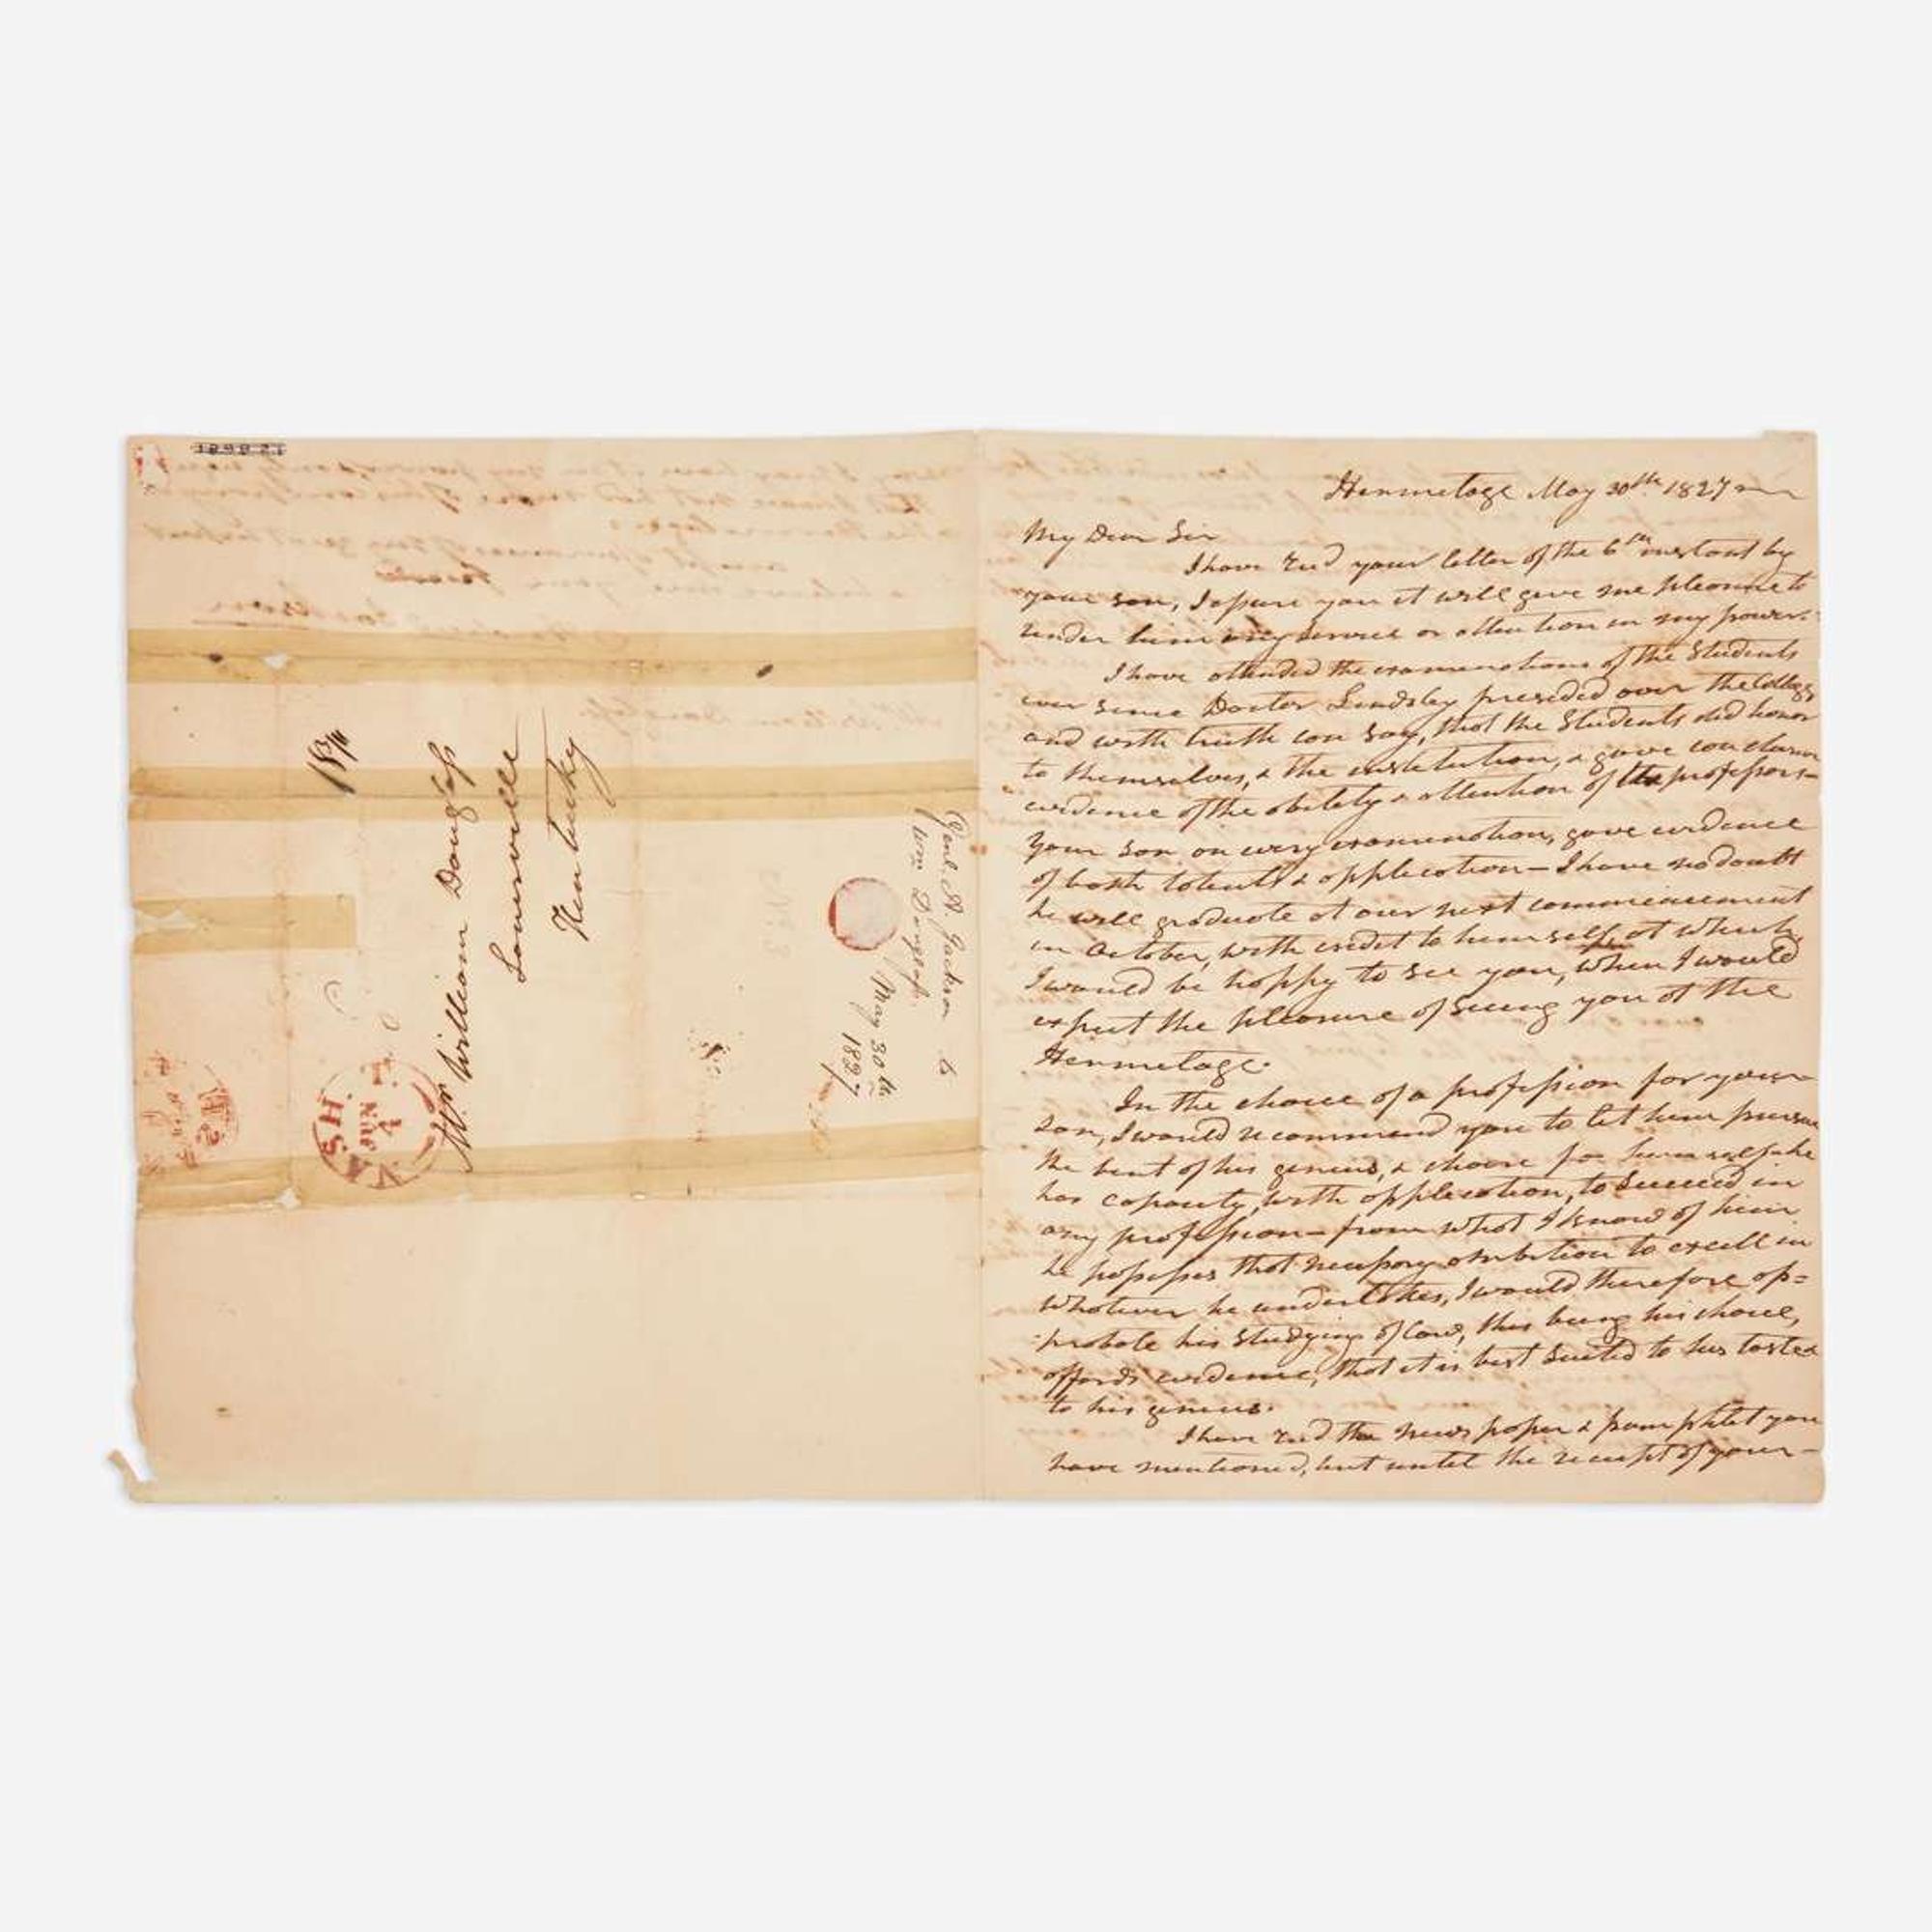 18¾
Mr William Douglass
Louisville
Kentucky
NASH. T.
JUN
1
Genl. A. Jackson to
Wm Douglass
May 30th
1827
Hermitage May 30th 1827
My Dear Sir
I have recd your letter of the 6th instant by
your son, I assure you it will give me pleasure to
render him any service or attention in my power.
I have attended the examinations of the Students
ever since Doctor Lindsley presided over the College
and with truth can say, that the Students did honor
to themselves, & the institution, & gave conclusive
evidence of the ability & attention of the professors—
Your son on every examination, gave evidence
of both talents & application— I have no doubt
he will graduate at our next commencement
in October, with credit to himself, at which
I would be happy to see you, when I would
expect the pleasure of seeing you at the
Hermitage.
In the choice of a profession for your
son, I would recommend you to let him pursue
the bent of his genius, & choose for himself, he
has capacity, with application, to succeed in
any profession— from what I know of him
he possesses that necessary ambition to excell in
whatever he undertakes, I would therefore ap=
probate his studying of law, this being his choice,
affords evidence, that it is best suited to his taste &
to his genius.
I have recd the newspaper & pamphlet you
have mentioned, but until the receipt of your—